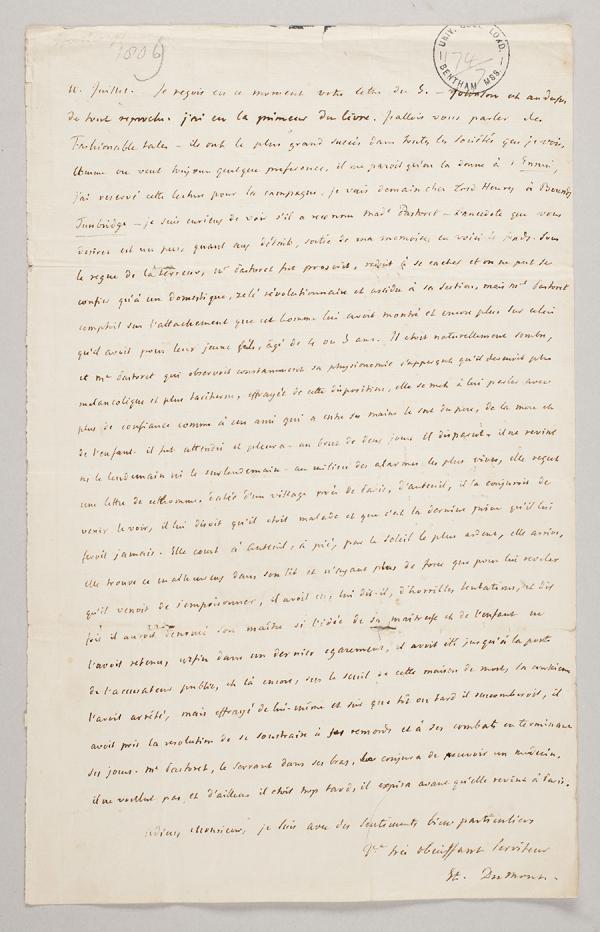 1806
UNIV. COLL. LOND.
174
BENTHAM MSS.
Juillet. Je reçois en ce moment votre lettre du 5. – Johnson est au dessus
de tout reproche. j'ai eu la primeur du livre. j'allois vous parler des
Fashionable tales – ils ont le plus grand succès dans toutes les sociétés que je vois,
Comme on veut toujour quelque preference, il me paroit qu'on la donne à l'Ennui,
j'ai reservé cette lecture pour la campagne. je vais demain chez Lord Henry à
Tunbridge – je suis curieux de voir s'il a reconnu Made Pastoret – L'anecdote que vous
desirez est un peu, quant aux détails, sortie de ma memoire, en voici le fonds. Sous
le regne de la terreur, Mr Pastoret fut proscrit, reduit à se cacher et on ne put se
confier qu'à un domestique, zelé révolutionnaire et assidu à sa section, mais Me Pastoret
comptoit sur l'attachement que cet homme lui avoit montré et encore plus sur celui
qu'il avoit pour leur jeune fils, âgé de 4 ou 5 ans. Il étoit naturellement sombre,
et Me Pastoret qui observoit constamment sa physionomie s'apperçut qu'il devenoit plus
melancolique et plus taciturne, effrayée de cette disposition, elle se met à lui parler avec
plus de confiance comme à un ami qui a entre ses mains le sort du pere, de la mere et
de l'enfant. il fut attendri et pleura – au bout de deux jours il disparut. il ne revint
ni le lendemain ni le surlendemain – au milieu des alarmes les plus vives, elle reçut
une lettre de cet homme, datée d'un village près de Paris, d'Auteuil, il la conjuroit de
venir le voir, il lui disoit qu'il étoit malade et que c'est la derniere priere qu'il lui
feroit jamais. Elle court à Auteuil, à pié, par le soleil le plus ardent, elle arrive,
elle trouve ce malheureux dans son lit et n'ayant plus de force que pour lui reveler
qu'il venoit de s'empoisonner, il avoit eu, lui dit-il, d'horribles tentations, dix
fois il auroit denoncé son maître si l'idée de sa maitresse et de l'enfant ne
l'avoit retenu, enfin dans un dernier egarement, il avoit été jusqu'à la porte
de l'accusateur public, et là encore, sur le seuil de cette maison de mort, la conscience
l'avoit arrêté, mais effrayé de lui-même et sûr que tôt ou tard il succomberoit, il
avoit pris la resolution de se soustraire à ses remords et à ses combats en terminant
ses jours. Me Pastoret, le serrant dans ses bras, le conjura de recevoir un médecin,
il ne voulut pas, et d'ailleurs il étoit trop tard, il expira avant qu'elle revint à Paris.
Adieu, Monsieur, je suis avec des sentiments bien particuliers
Vre très obeissant Serviteur
Et. Dumont.